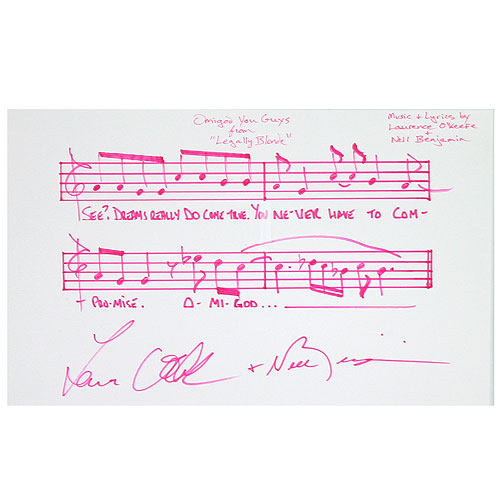 Omigod You Guys
from
"Legally Blonde"
Music + Lyrics by
Laurence O'Keefe
+
Nell Benjamin
SEE? DREAMS REALLY DO COME TRUE. YOU NE-VER HAVE TO COM-
PRO-MISE. O-MI-GOD...
+ Nell Benjamin